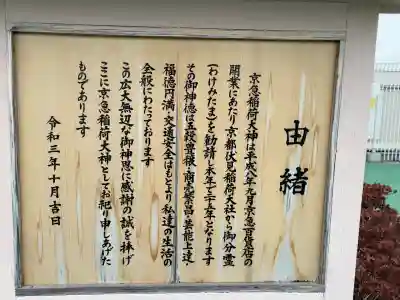 由緒
京急稲荷大神は平成八年九月京急百貨店の
開業にあたり京都伏見稲荷大社から御分霊
(わけみたま)を勧請し本年で二十五年となります
その御神徳は五穀豊穣・商売繁昌・芸能上達・
福徳円満、交通安全はもとより私達の生活の
全般にわたっております
この広大無辺な御神恩に感謝の誠を捧げ
ここに京急稲荷大神としてお祀り申しあげた
ものであります
令和三年十月吉日